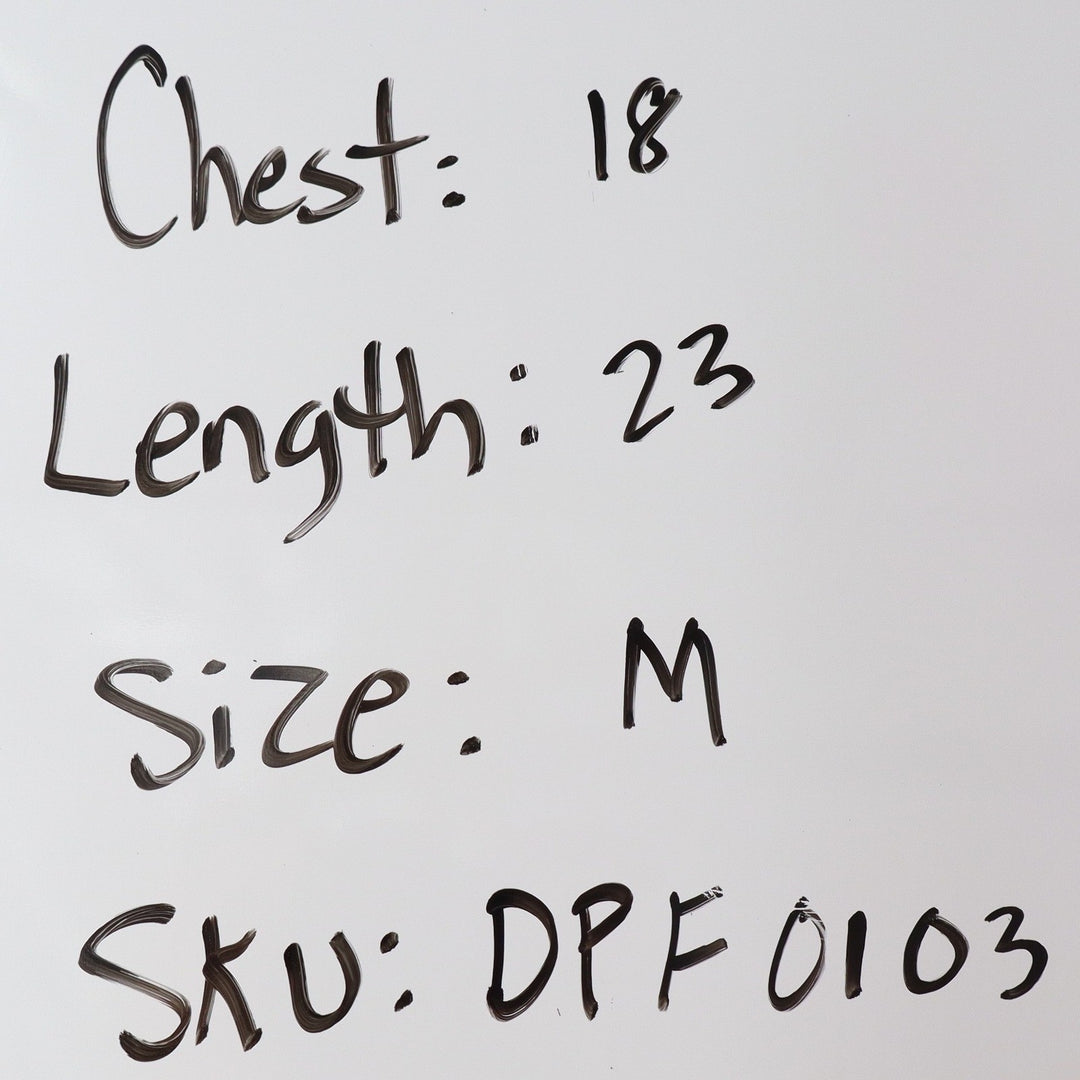 Chest: 18
Length: 23
Size: M
Sku: DPF0103